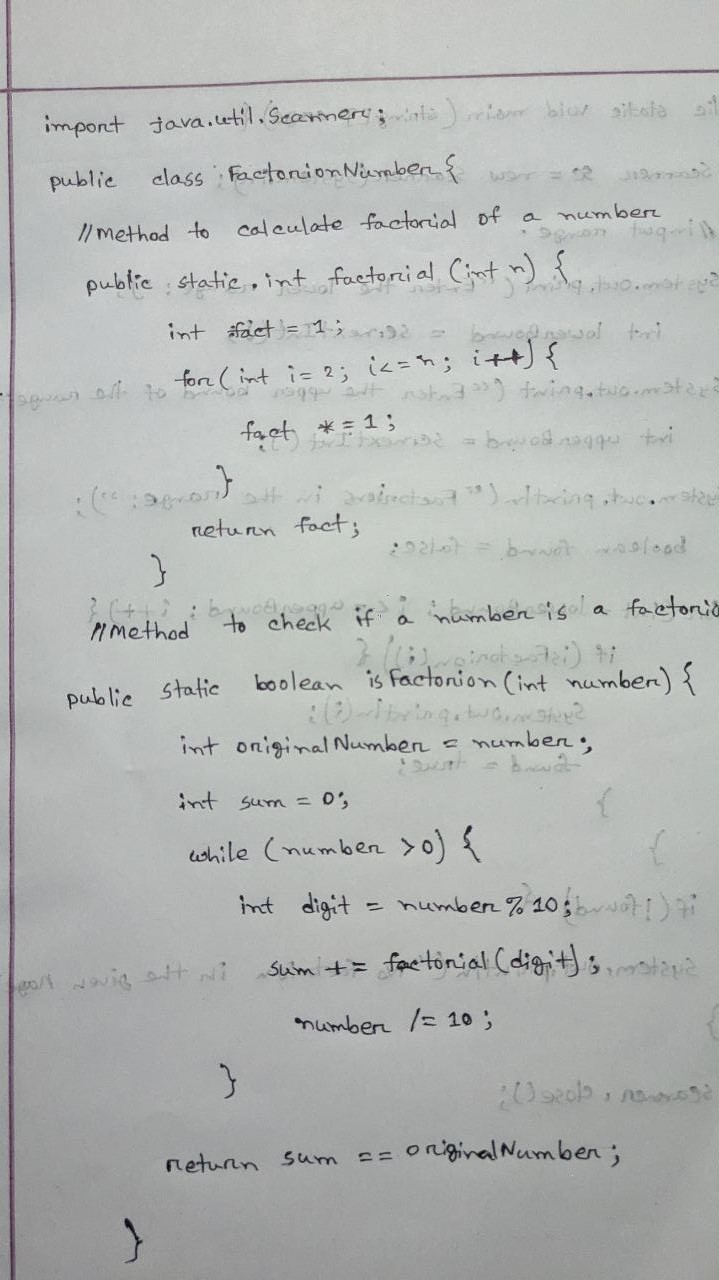 import java.util.Scanner;
public class FactorionNumber{
//Method to calculate factorial of a number
public static int factorial (int n) {
int fact = 1;
for( int i = 2; i <= n; i++) {
fact *= 1;
}
return fact;
}
//Method to check if a number is a factorio
public static boolean isFactorion (int number) {
int originalNumber = number;
int sum = 0;
while (number >0) {
int digit = number % 10;
sum += factorial (digit);
number /= 10;
}
return sum == originalNumber;
}